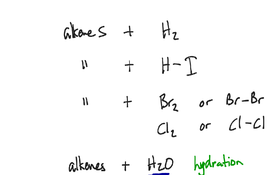 alkenes + H₂
" + H-I
" + Br₂ or Br-Br
Cl₂ or Cl-Cl
alkenes + H₂O hydration